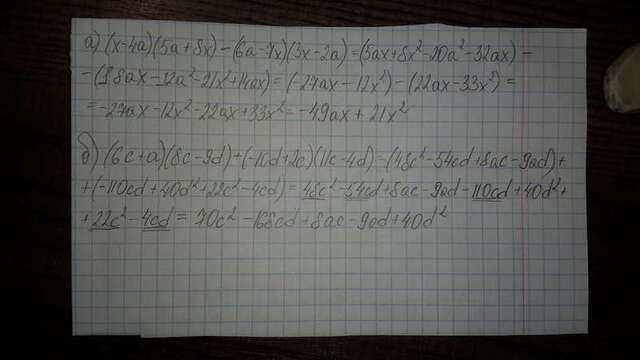 а) (x-4a)(5a+8x)-(6a-7x)(3x-2a)=(5ax+8x²-20a²-32ax)-
-(18ax-12a²-21x²+14ax)=(-27ax-12x²)-(22ax-33x²)=
=-27ax-12x²-22ax+33x²=-49ax+21x²
б) (6c+a)(8c-9d)+(-10d+2c)(11c-4d)=(48c²-54cd+8ac-9ad)+
+(-110cd+40d²+22c²-4cd)=48c²-54cd+8ac-9ad-110cd+40d²+
+22c²-4cd=70c²-168cd+8ac-9ad+40d²